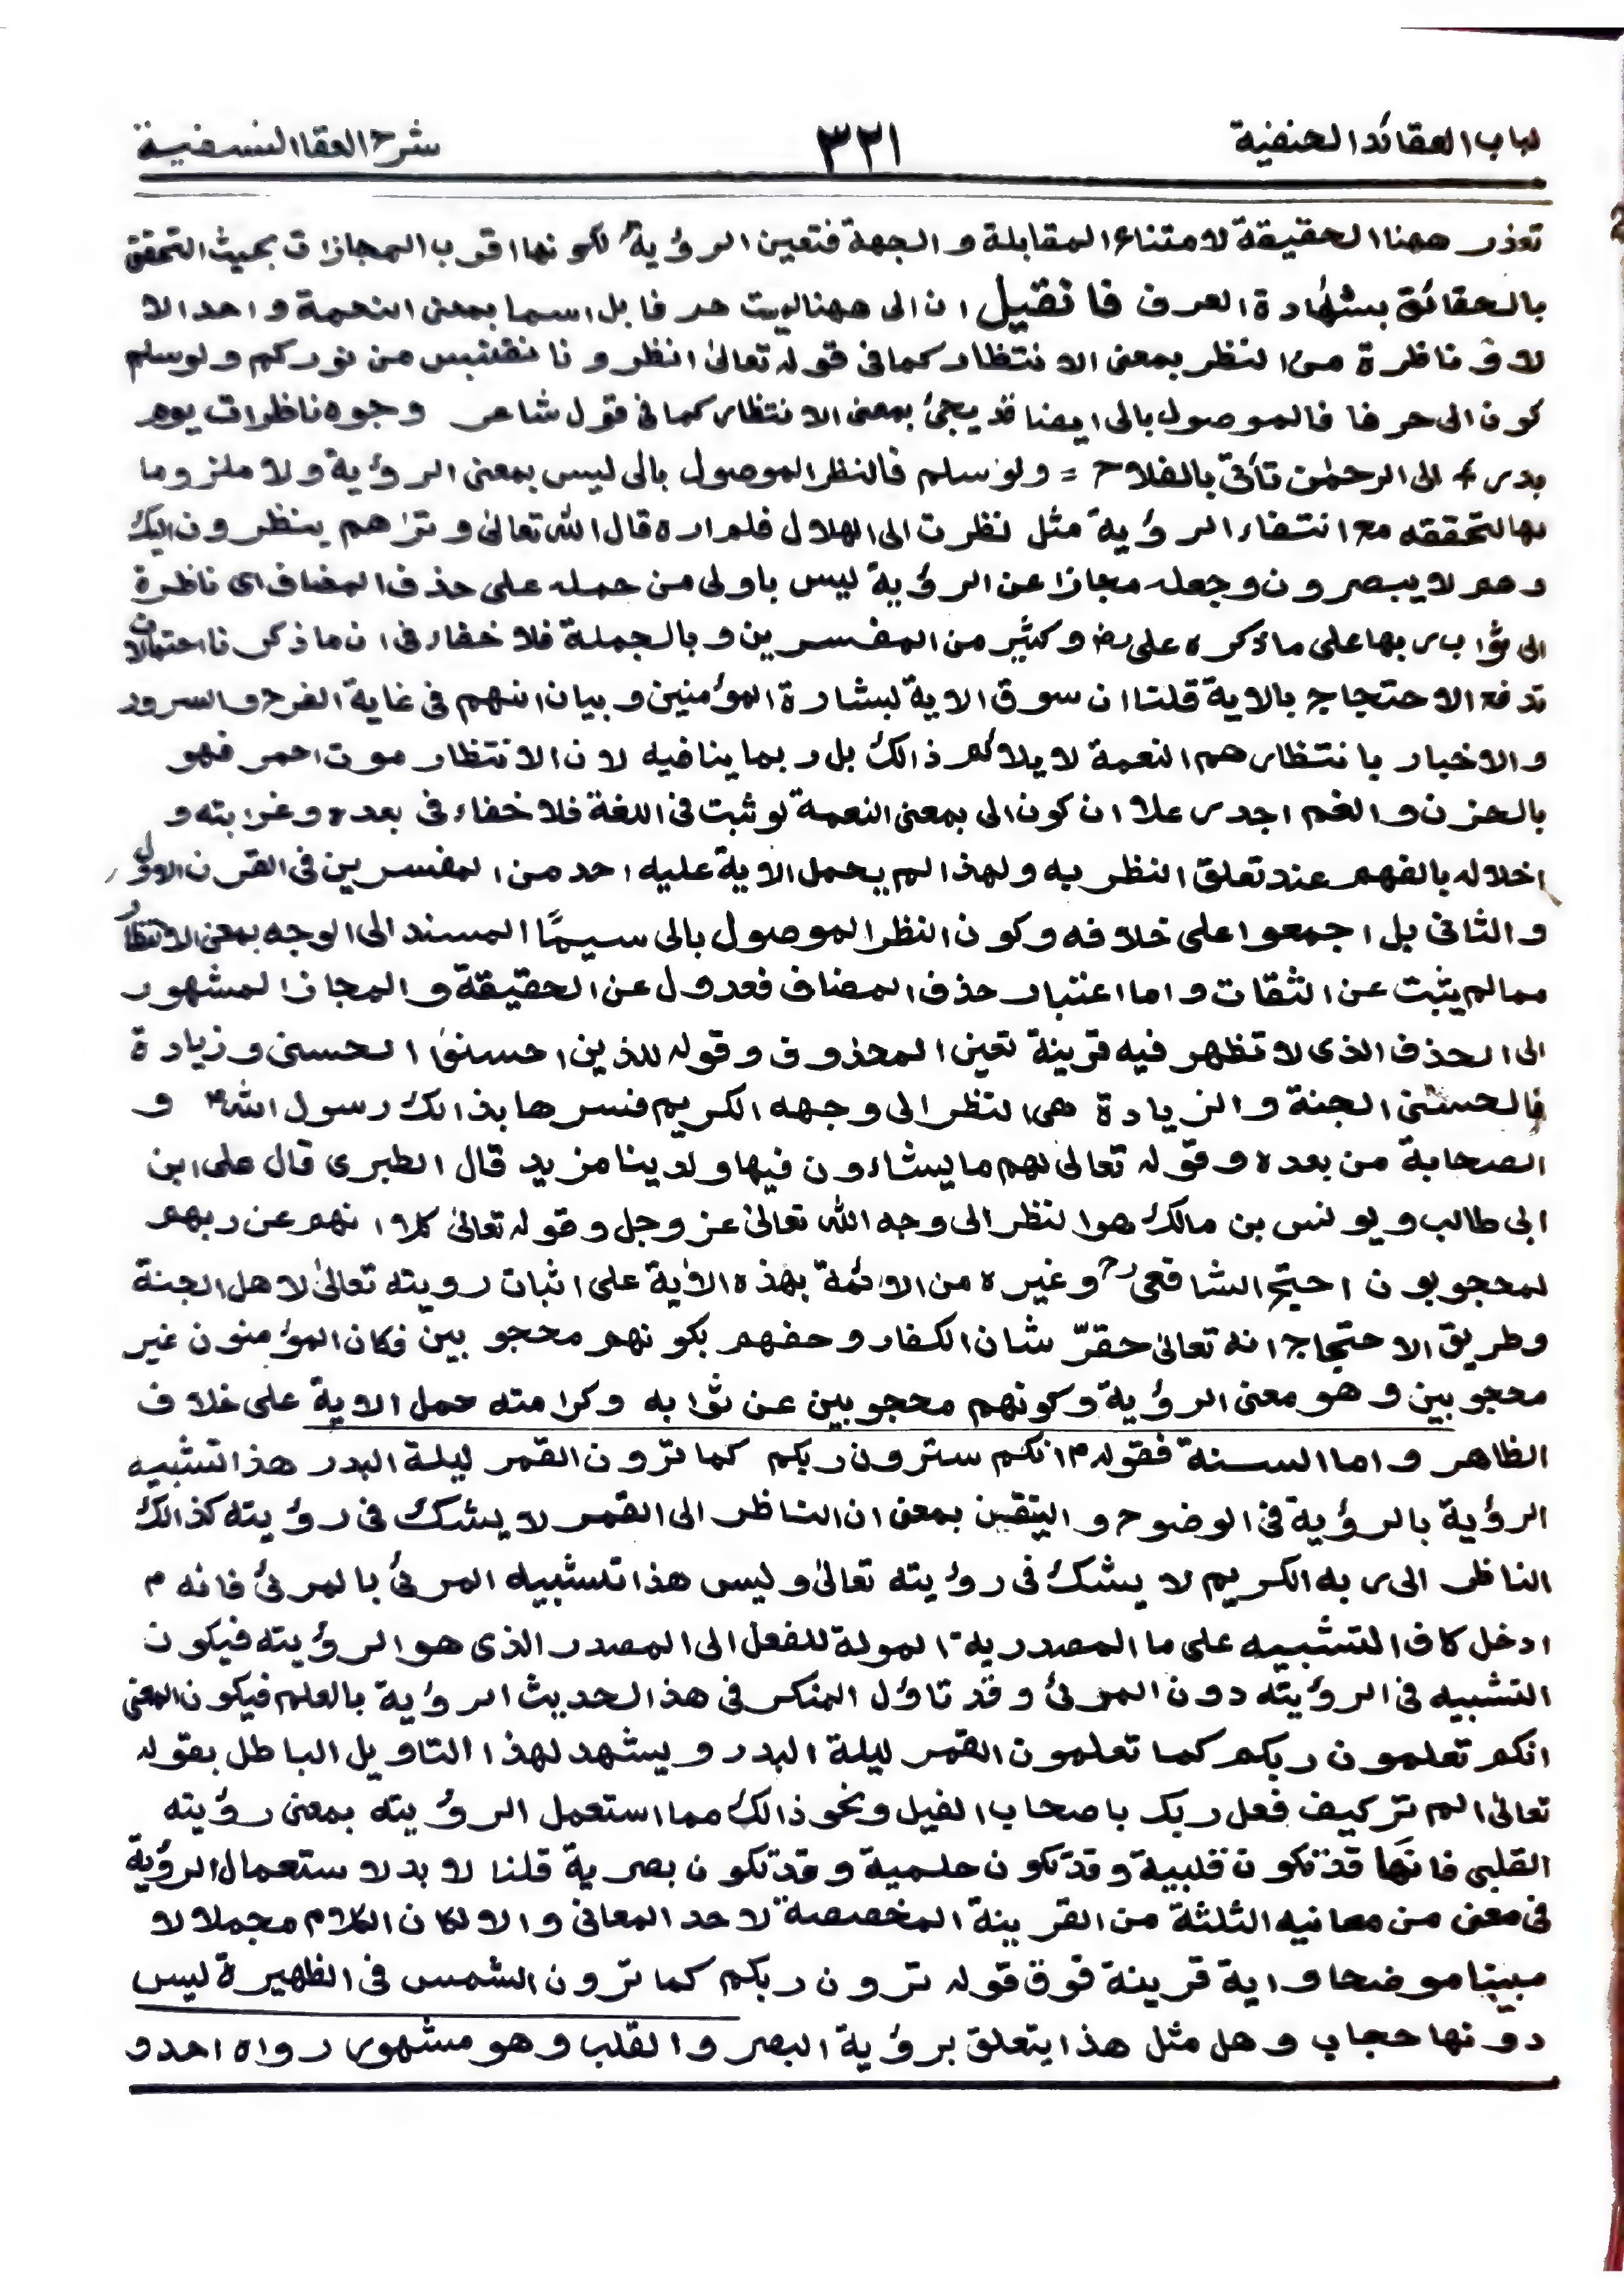 لباب العقائد الحنفية ٣٢١ شرح العقا النسفية
تعذر ههنا الحقيقة لامتناع المقابلة و الجهة فتعين الرؤية لكونها اقرب المجازات بحيث التحقق
بالحقائق بشهادة العرف فان قيل ان الى ههنا ليست حرفا بل اسما بمعنى النعمة و احد الا
لاؤ ناظرة من النظر بمعنى الانتظار كما فى قوله تعالىٰ انظرونا نقتبس من نوركم ولو سلم
كون الى حرفا فالموصول بالى ايضا قد يجئ بمعنى الانتظار كما فى قول شاعر وجوه ناظرات يوم
بدر ؛ الى الرحمٰن تأتى بالفلاح = ولو سلم فالنظر الموصول بالى ليس بمعنى الرؤية ولا ملزوما
بها لتحققه مع انتفاء الرؤية مثل نظرت الى الهلال فلم اره قال الله تعالىٰ وترٰاهم ينظرون اليك
وهم لا يبصرون وجعله مجازا عن الرؤية ليس باولى من حمله على حذف المضاف اى ناظرة
الى ثواب ربها على ما ذكره على رض و كثير من المفسرين و بالجملة فلا خفاء فى ان ما ذكرنا احتمالات
تدفع الاحتجاج بالاية قلنا ان سوق الاية لبشارة المؤمنين و بيان انهم فى غاية الفرح والسرور
والاخبار بانتظارهم النعمة لا يلائم ذالك بل ربما ينافيه لان الانتظار موت احمر فهو
بالحزن و الغم اجدر علا ان كون الى بمعنى النعمة لو ثبت فى اللغة فلا خفاء فى بعده وغرابته و
اخلاله بالفهم عند تعلق النظر به و لهذا لم يحمل الاية عليه احد من المفسرين فى القرن الاول
و الثانى بل اجمعوا على خلافه و كون النظر الموصول بالى سيمًا المسند الى الوجه بمعنى الانتظار
مما لم يثبت عن الثقات و اما اعتبار حذف المضاف فعدول عن الحقيقة و المجاز المشهور
الى الحذف الذى لا تظهر فيه قرينة تعين المحذوف و قوله للذين احسنوا الحسنى و زيادة
فالحسنى الجنة و الزيادة هى النظر الى وجهه الكريم فسرها بذالك رسول اللهؐ و
الصحابة من بعده و قوله تعالىٰ لهم ما يشاءون فيها ولدينا مزيد قال الطبرى قال على ابن
ابى طالب و يو لنس بن مالك هو النظر الى وجه الله تعالىٰ عز وجل و قوله تعالىٰ كلا انهم عن ربهم
لمحجوبون احتج الشافعىؒ و غيره من الائمة بهذه الاٰية على اثبات رويته تعالىٰ لاهل الجنة
وطريق الاحتجاج انه تعالىٰ حقرّ شان الكفار و حفهم بكونهم محجوبين فكان المؤمنون غير
محجوبين و هو معنى الرؤية و كونهم محجوبين عن ثوابه وكرامته حمل الاية على خلاف
الظاهر و اما السنة فقولهؐ انكم سترون ربكم كما ترون القمر ليلة البدر هذا تشبيه
الرؤية بالرؤية فى الوضوح و التيقن بمعنى ان الناظر الى القمر لا يشك فى رؤيته كذالك
الناظر الى ربه الكريم لا يشك فى رؤيته تعالىٰ و ليس هذا تشبيه المرئى بالمرئى فانه م
ادخل كاف التشبيه على ما المصدرية المولة للفعل الى المصدر الذى هو الرؤيته فيكون
التشبيه فى الرؤيته دون المرئى و قد تاؤل المنكر فى هذا الحديث الرؤية بالعلم فيكون المعنى
انكم تعلمون ربكم كما تعلمون القمر ليلة البدر و يشهد لهذا التاويل الباطل بقوله
تعالىٰ الم تر كيف فعل ربك باصحاب الفيل ونحو ذالك مما استعمل الرؤيته بمعنى رؤيته
القلبى فانها قد تكون قلبية و قد تكون حلمية و قد تكون بصرية قلنا لا بد لاستعمال الرؤية
فى معنى من معانيه الثلثة من القرينة المخصصة لاحد المعانى و الا لكان الكلام مجملا لا
مبينا موضحا و اية قرينة فوق قوله ترون ربكم كما ترون الشمس فى الظهيرة ليس
دونها حجاب و هل مثل هذا يتعلق برؤية البصر و القلب و هو مشهور رواه احد و